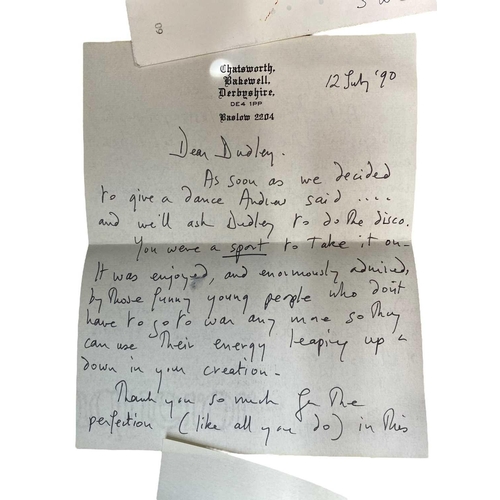 8
Chatsworth,
Bakewell,
Derbyshire,
DE4 1PP
Baslow 2204
12 July '90
Dear Dudley.
As soon as we decided
to give a dance Andrew said ....
and we'll ask Dudley to do the disco.
You were a sport to take it on -
It was enjoyed, and enormously admired,
by those funny young people who don't
have to go to war any more so they
can use their energy leaping up &
down in your creation -
Thank you so much for the
perfection (like all you do) in this